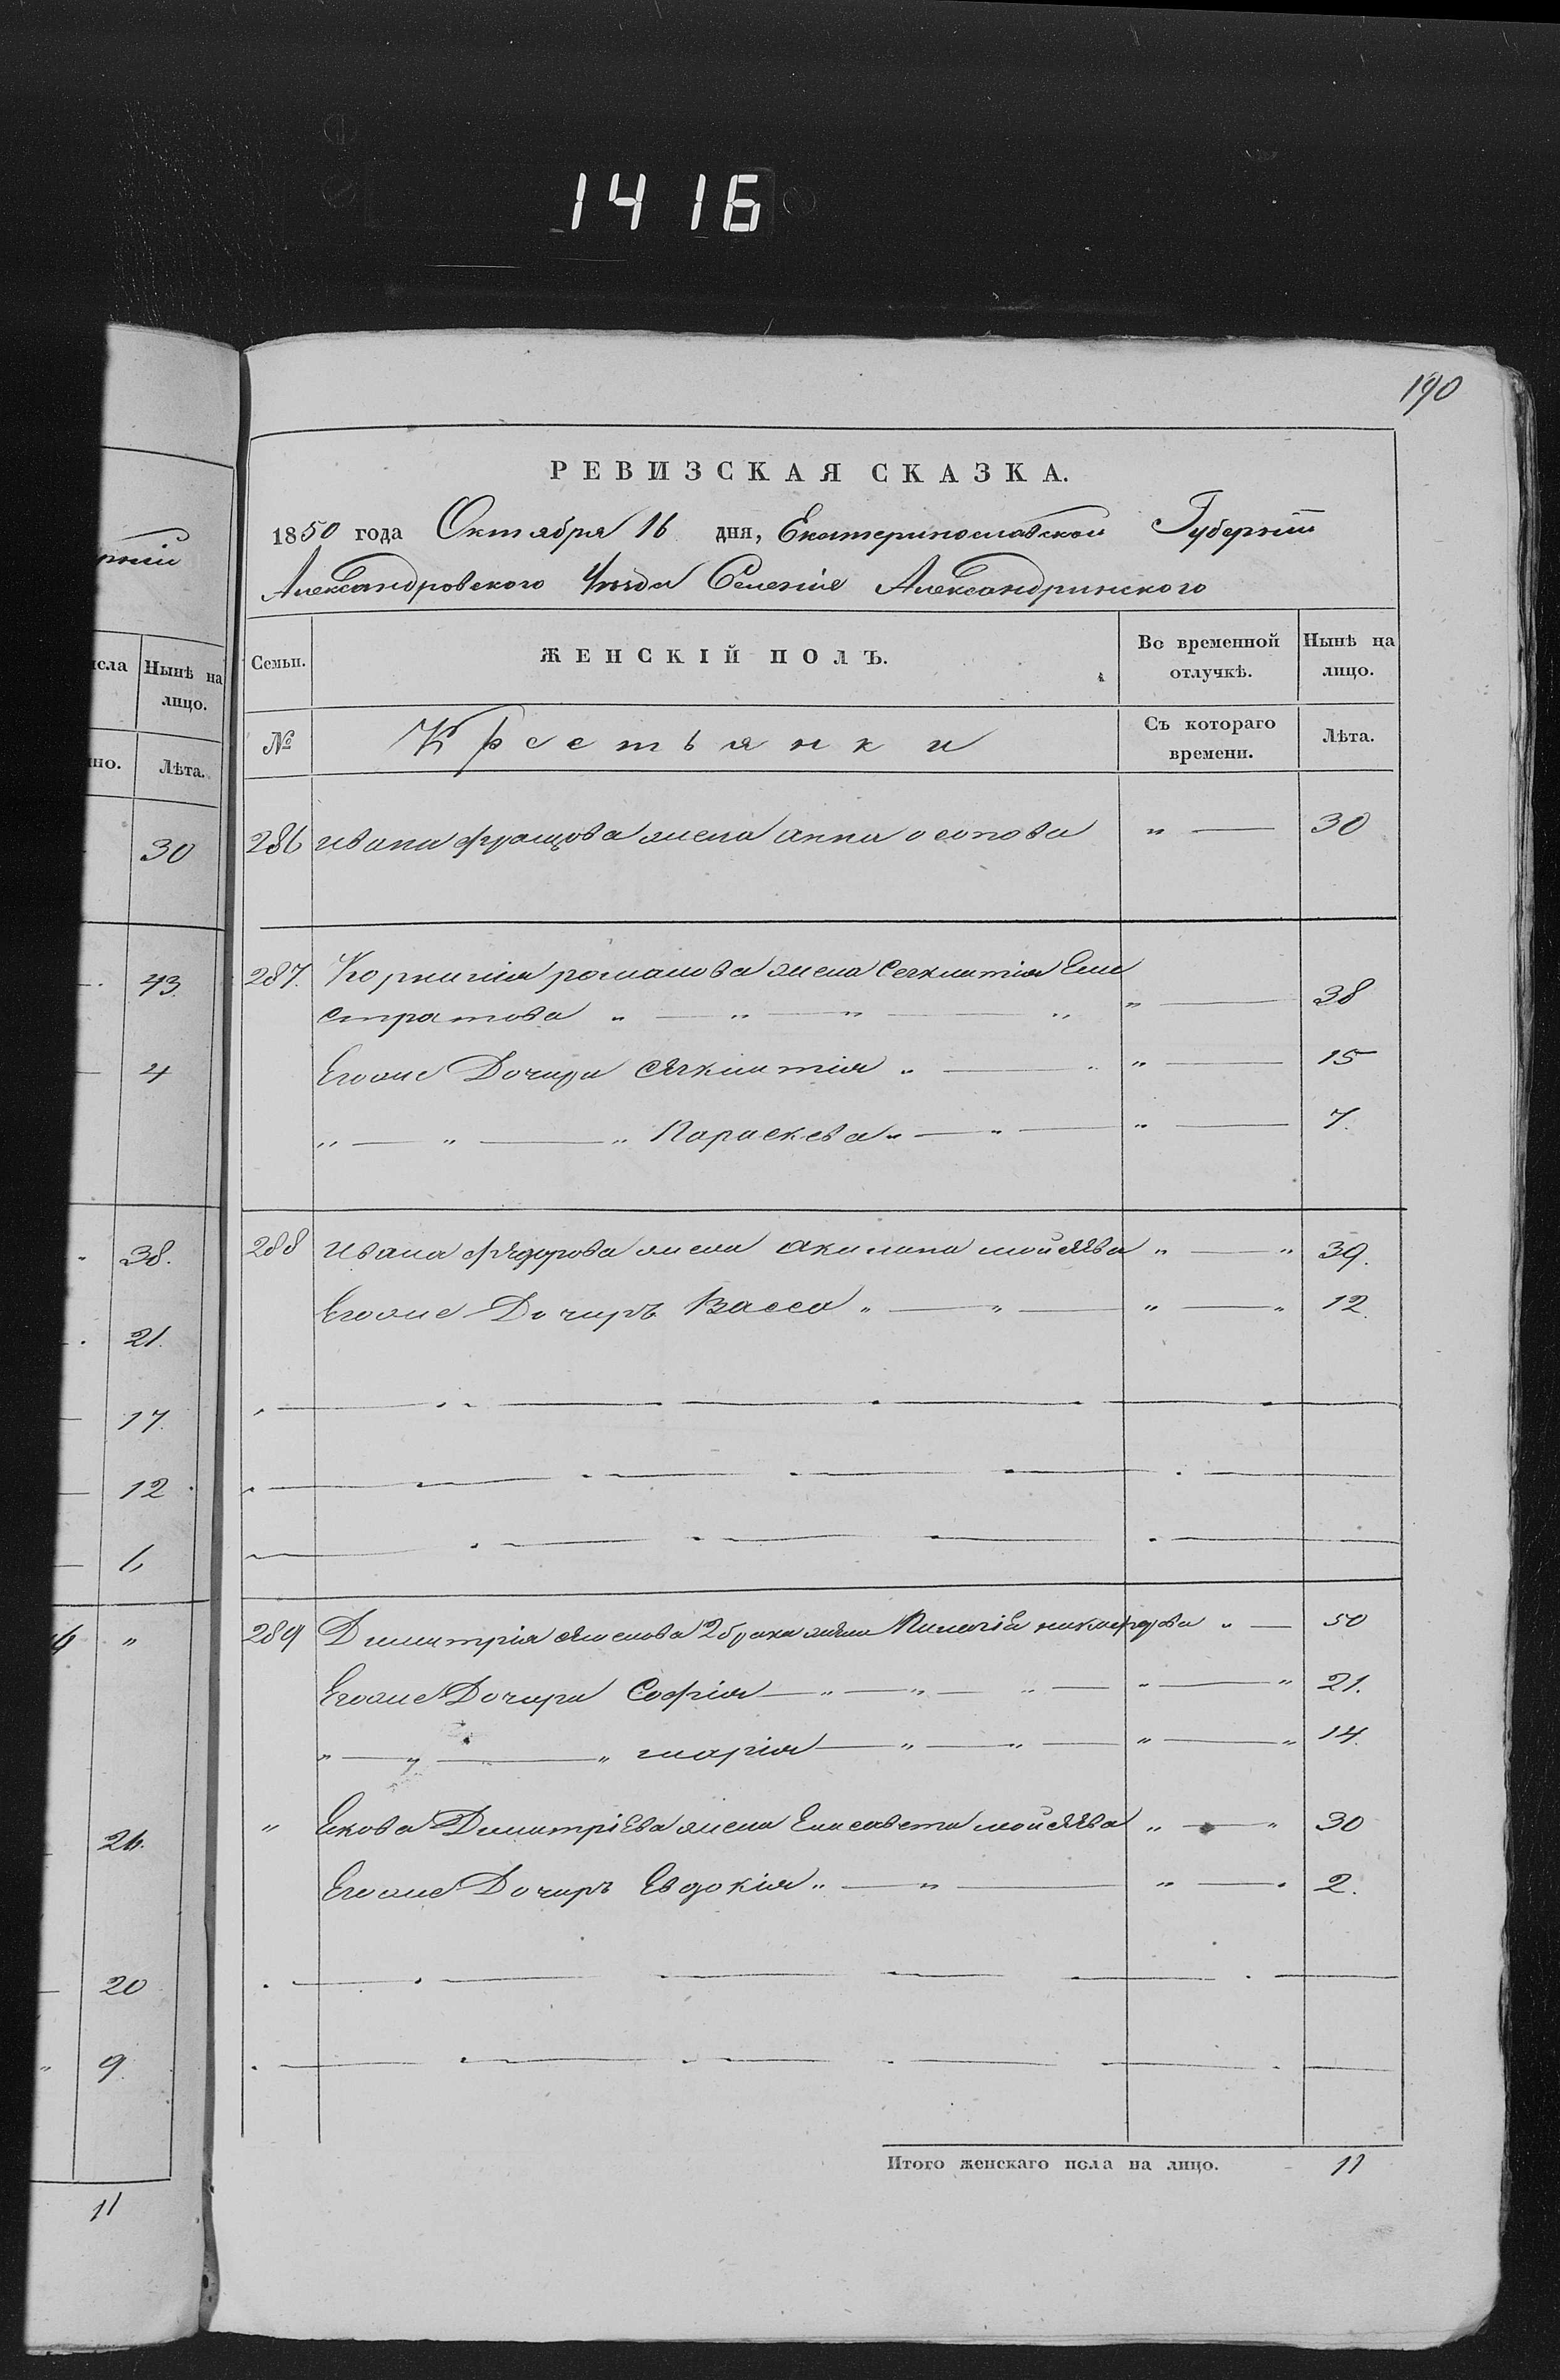 1416
190
РЕВИЗСКАЯ СКАЗКА.
1850 года Октября 16 дня, Екатеринославской Губерніи
Александровского Уезда Селенія Александринского
Семьи. ЖЕНСКІЙ ПОЛЪ. Во временной отлучкѣ. Нынѣ на лицо.
№ Крестьянки Съ котораго времени. Лѣта.
286 Ивана жена анна осипова " — 30
287. Корнилия романова жена Евстратова " — 38
Егоже Дочери " — 15
" — " — " Параскева " — " — 7.
288 Ивана федорова жена акилина мойсеева " — " 39.
Егоже Дочирь Васса " — " — " — " 12.
289 Димитрия 2 брака жена никифорова " — 50
Егоже Дочери Софія — " — " — " — " 21.
" — " — " марія — " — " — " — " 14.
" Екова Димитріева жена Елисавета мойсеева " — " 30
Егоже Дочирь Евдокія " — " — " — 2.
Итого женскаго пола на лицо. 11
рніи
исла Нынѣ на лицо.
но. Лѣта.
30
43.
4
38.
21.
17.
12
6
"
26.
20
9
11